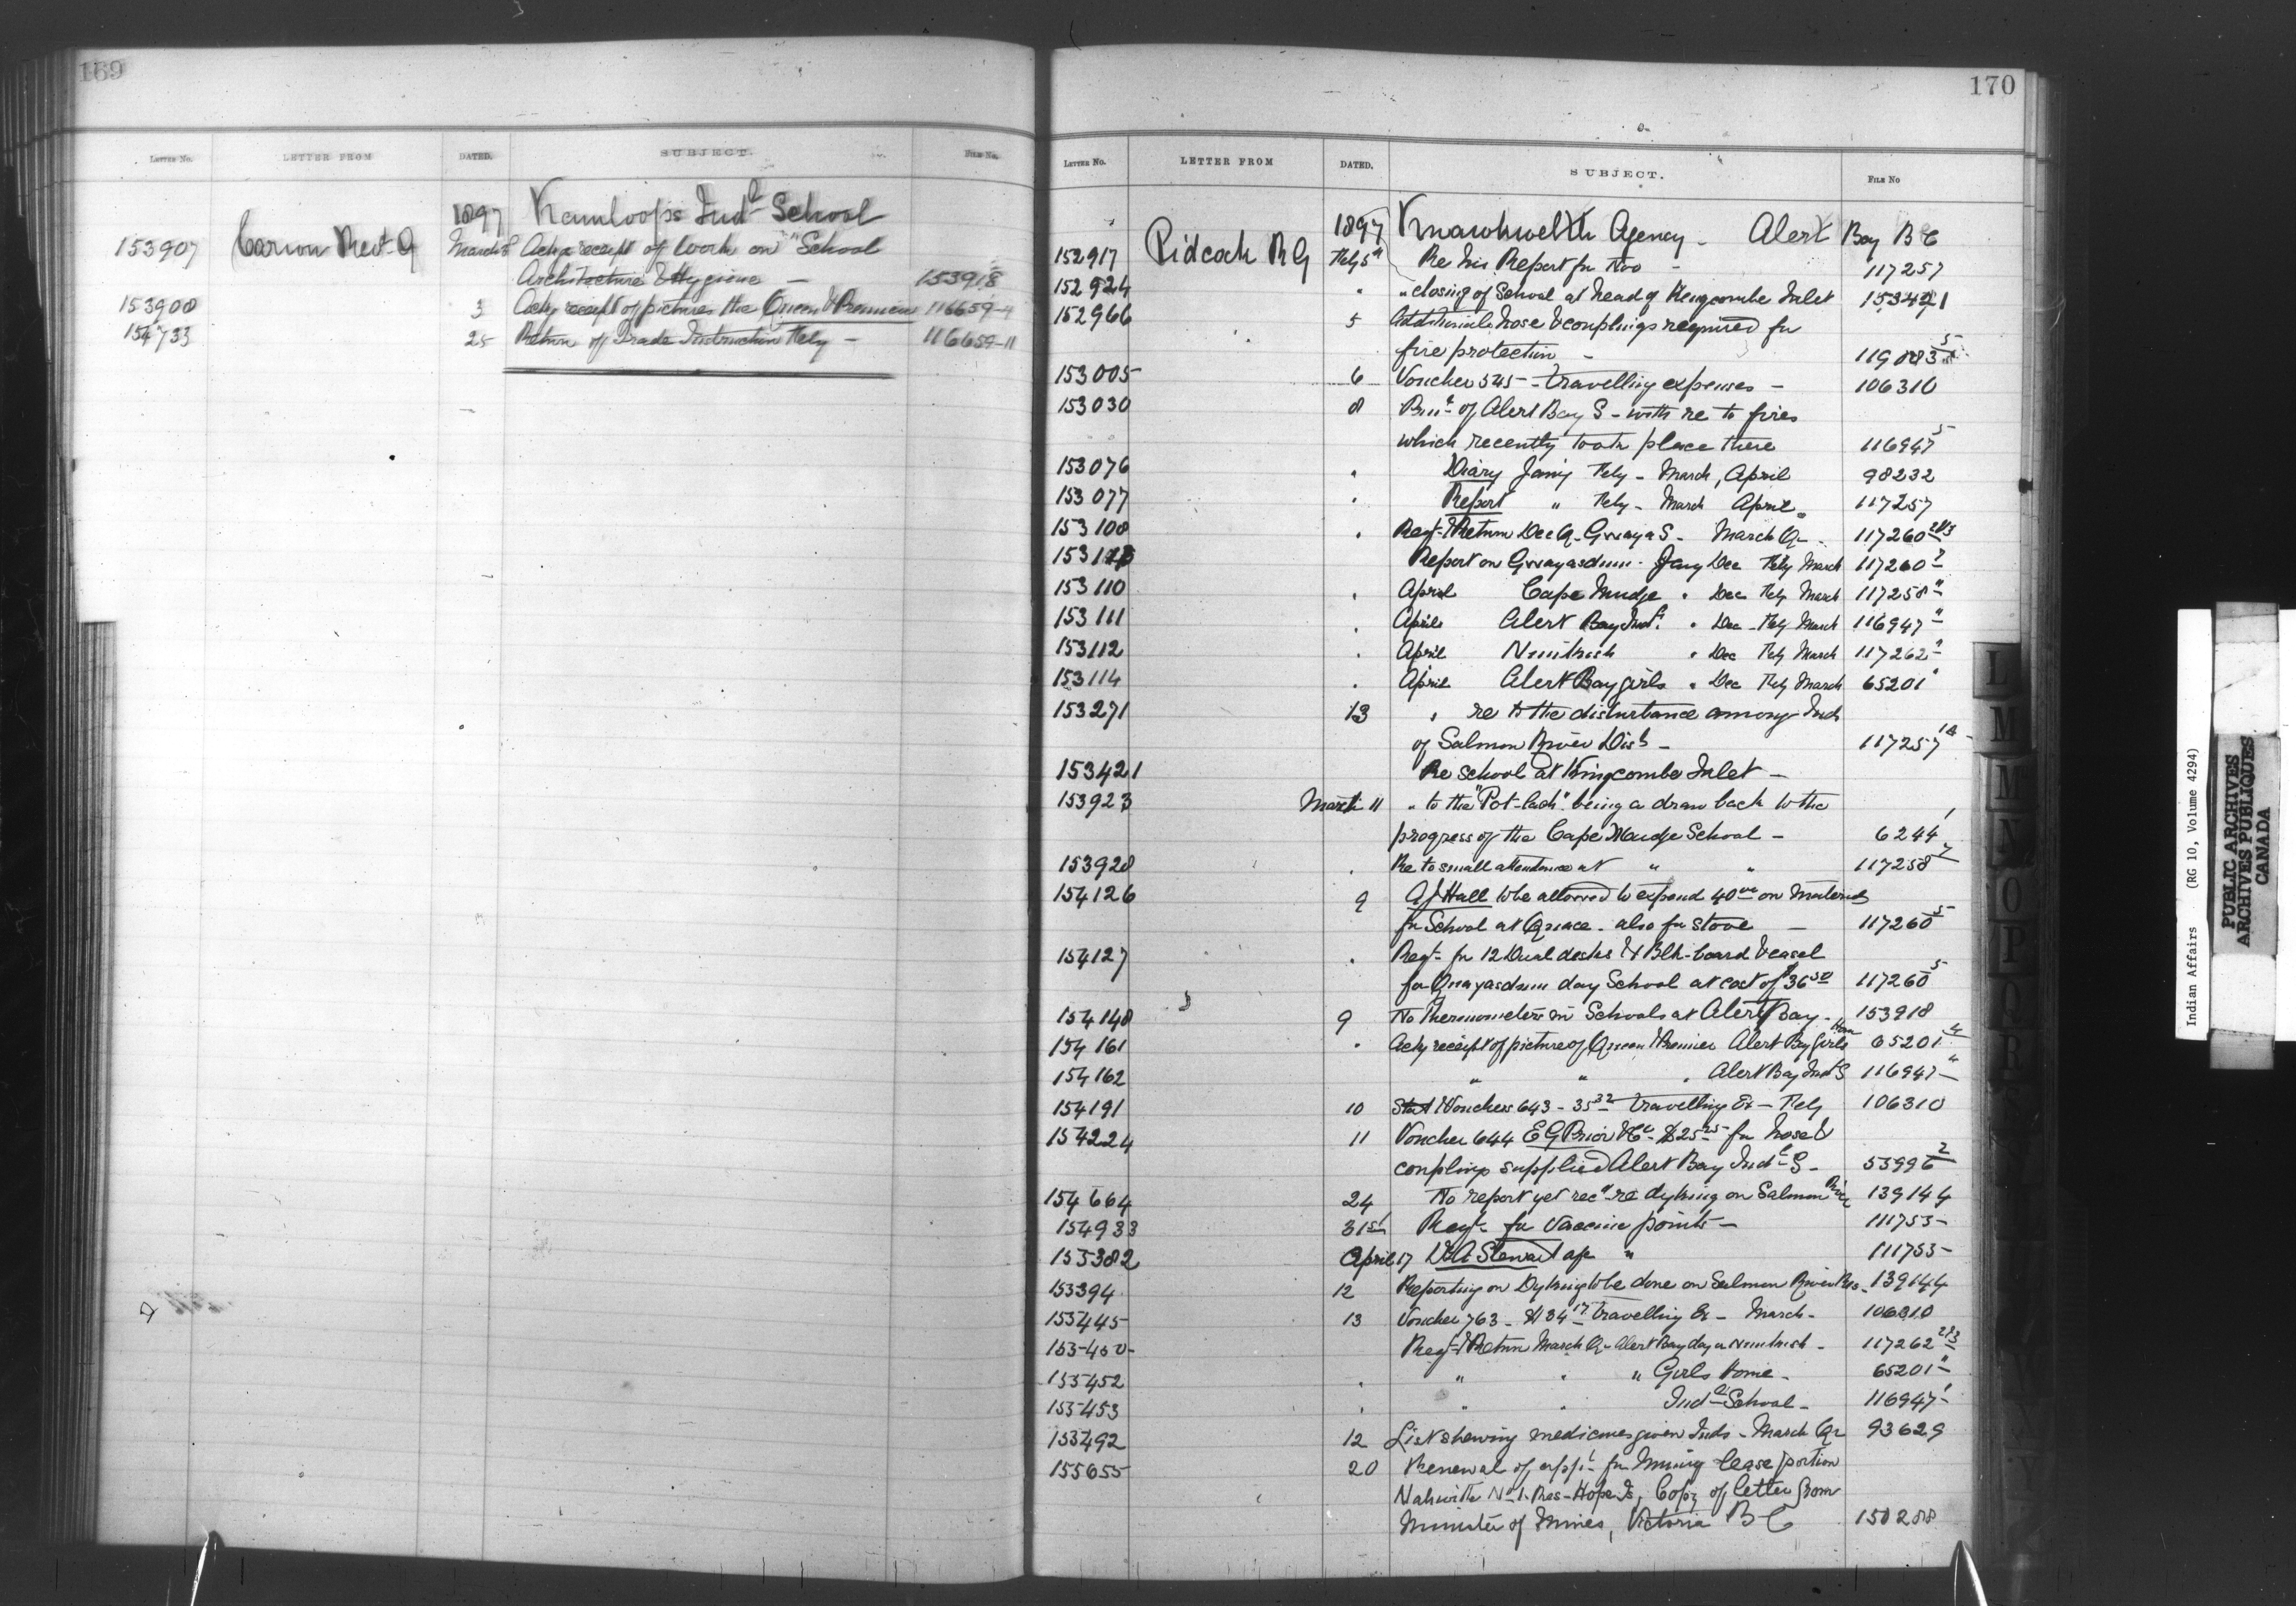 169
LETTER No. LETTER FROM DATED. SUBJECT. FILE No.
1897 Kamloops Indl School
153907 Carion Revd G March 3 Ackg receipt of work on "School
Architecture & Hygiene — 153918
153908 3 Ackg receipt of pictures the Queen & Premier 116659-4
154733 25 Return of Trade Instruction Feby — 116659-11
170
LETTER No. LETTER FROM DATED. SUBJECT. FILE No
1897 Kwawkwelth Agency - Alert Bay B C
152917 Pidcock R G Feby 5th Re his Report for Nov - 117257
152924 " " closing of School at head of Kingcombe Inlet 153421
152966 5 Additional hose & couplings required for
fire protection - 119083 5
153005 6 Voucher 545 - travelling expenses - 106310
153030 8 of Alert Bay S - with re to fires
which recently took place there 116947 5
153076 " Diary Jany Feby - March, April 98232
153077 " Report " Feby - March April 117257
153108 " Reqn & Return Dec Qr Gwaya S - March Qr - 117260 2&3
Report on Gwayasdum - Jany Dec Feby March 117260
153110 " April Cape Mudge " Dec Feby March 117258 "
153111 " April Alert Bay Indl " Dec - Feby March 116947 "
153112 " April Nimkish " Dec Feby March 117262 "
153114 " April Alert Bay girls " Dec Feby March 65201 "
153271 13 " re to the disturbance among Inds
of Salmon River Dist - 117257
153421 Re School at Kingcombe Inlet -
153923 March 11 " to the "Pot-lach" being a draw back to the
progress of the Cape Mudge School - 6244 1
153928 " Re to small attendance at " " 117258
154126 9 A J Hall to be allowed to expend 40 00 on material
for School at also for stove — 117260 5
154127 " Reqn for 12 Dual desks & Blk-board & easel
for Gwayasdum day School at cost of $36 50 117260 5
154148 9 No Thermometers in Schools at Alert Bay - 153918
154161 " Ackg receipt of picture of Queen & Premier Alert Bay Girls Home 65201 4
154162 " " " Alert Bay Indl S 116947 "
154191 10 Stat & Voucher 643 - 35 32 travelling Ex - Feby 106310
154224 11 Voucher 644 E G Prior & Co $25 25 for hose &
couplings supplied Alert Bay Indl S - 53996 2
154664 24 No report yet recd re dyking on Salmon River 139144
154933 31st Reqn for Vaccine points - 111753-
155382 April 17 Dr A Stewart " 111753-
155394 12 Reporting on Dyking to be done on Salmon River Res - 139144
155445 13 Voucher 763 - $34 17 travelling Ex - March - 106310
155450 Reqn & Return March Qr Alert Bay day or Nimkish - 117262 2&3
155452 " " " " Girls Home - 65201 "
155453 " " " Indl School - 116947
155492 12 List shewing medicines given Inds - March Qr 93629
155655 20 Renewal of appn for Mining lease portion
Nahwitte No 1 Res - Hope Is, Copy of letter from
Minister of Mines, Victoria B C 150288
L
M
M
N
O
P
Q
R
Indian Affairs (RG 10, Volume 4294)
PUBLIC ARCHIVES
ARCHIVES PUBLIQUES
CANADA